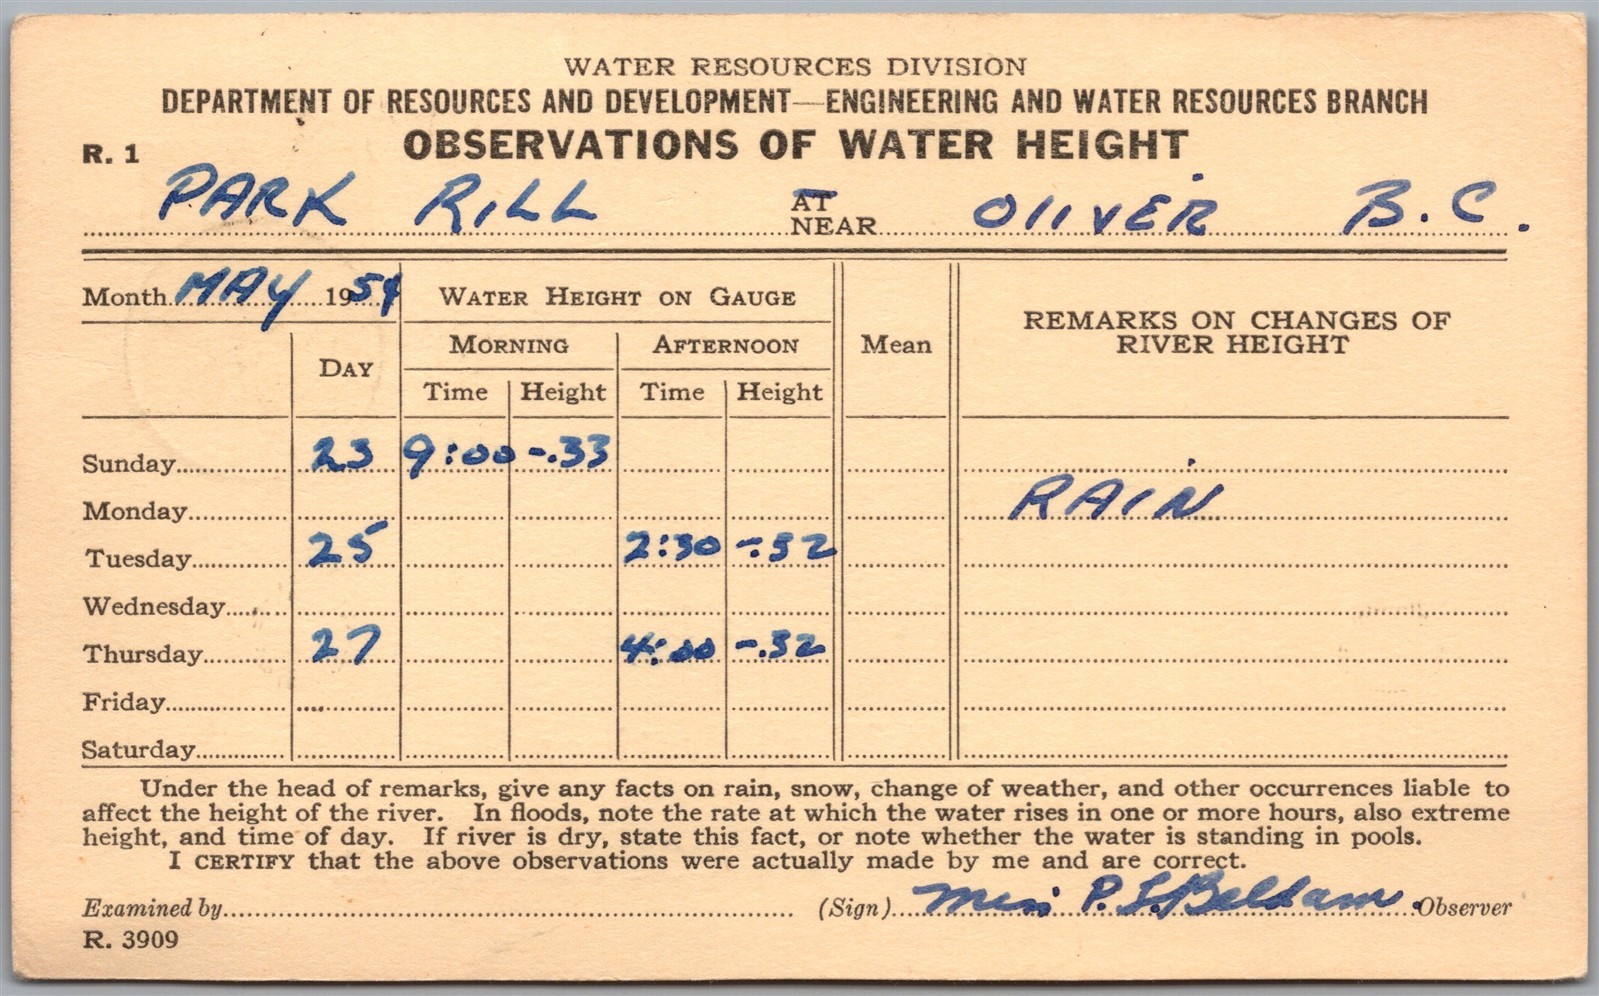 WATER RESOURCES DIVISION
DEPARTMENT OF RESOURCES AND DEVELOPMENT—ENGINEERING AND WATER RESOURCES BRANCH
R. 1 OBSERVATIONS OF WATER HEIGHT
PARK RILL AT NEAR OLIVER B.C.
Month MAY 1954 WATER HEIGHT ON GAUGE Mean REMARKS ON CHANGES OF RIVER HEIGHT
DAY MORNING AFTERNOON
Time Height Time Height
Sunday 23 9:00 -.33
Monday RAIN
Tuesday 25 2:30 -.32
Wednesday
Thursday 27 4:00 -.32
Friday
Saturday
Under the head of remarks, give any facts on rain, snow, change of weather, and other occurrences liable to
affect the height of the river. In floods, note the rate at which the water rises in one or more hours, also extreme
height, and time of day. If river is dry, state this fact, or note whether the water is standing in pools.
I CERTIFY that the above observations were actually made by me and are correct.
Examined by (Sign) P. Beldam Observer
R. 3909